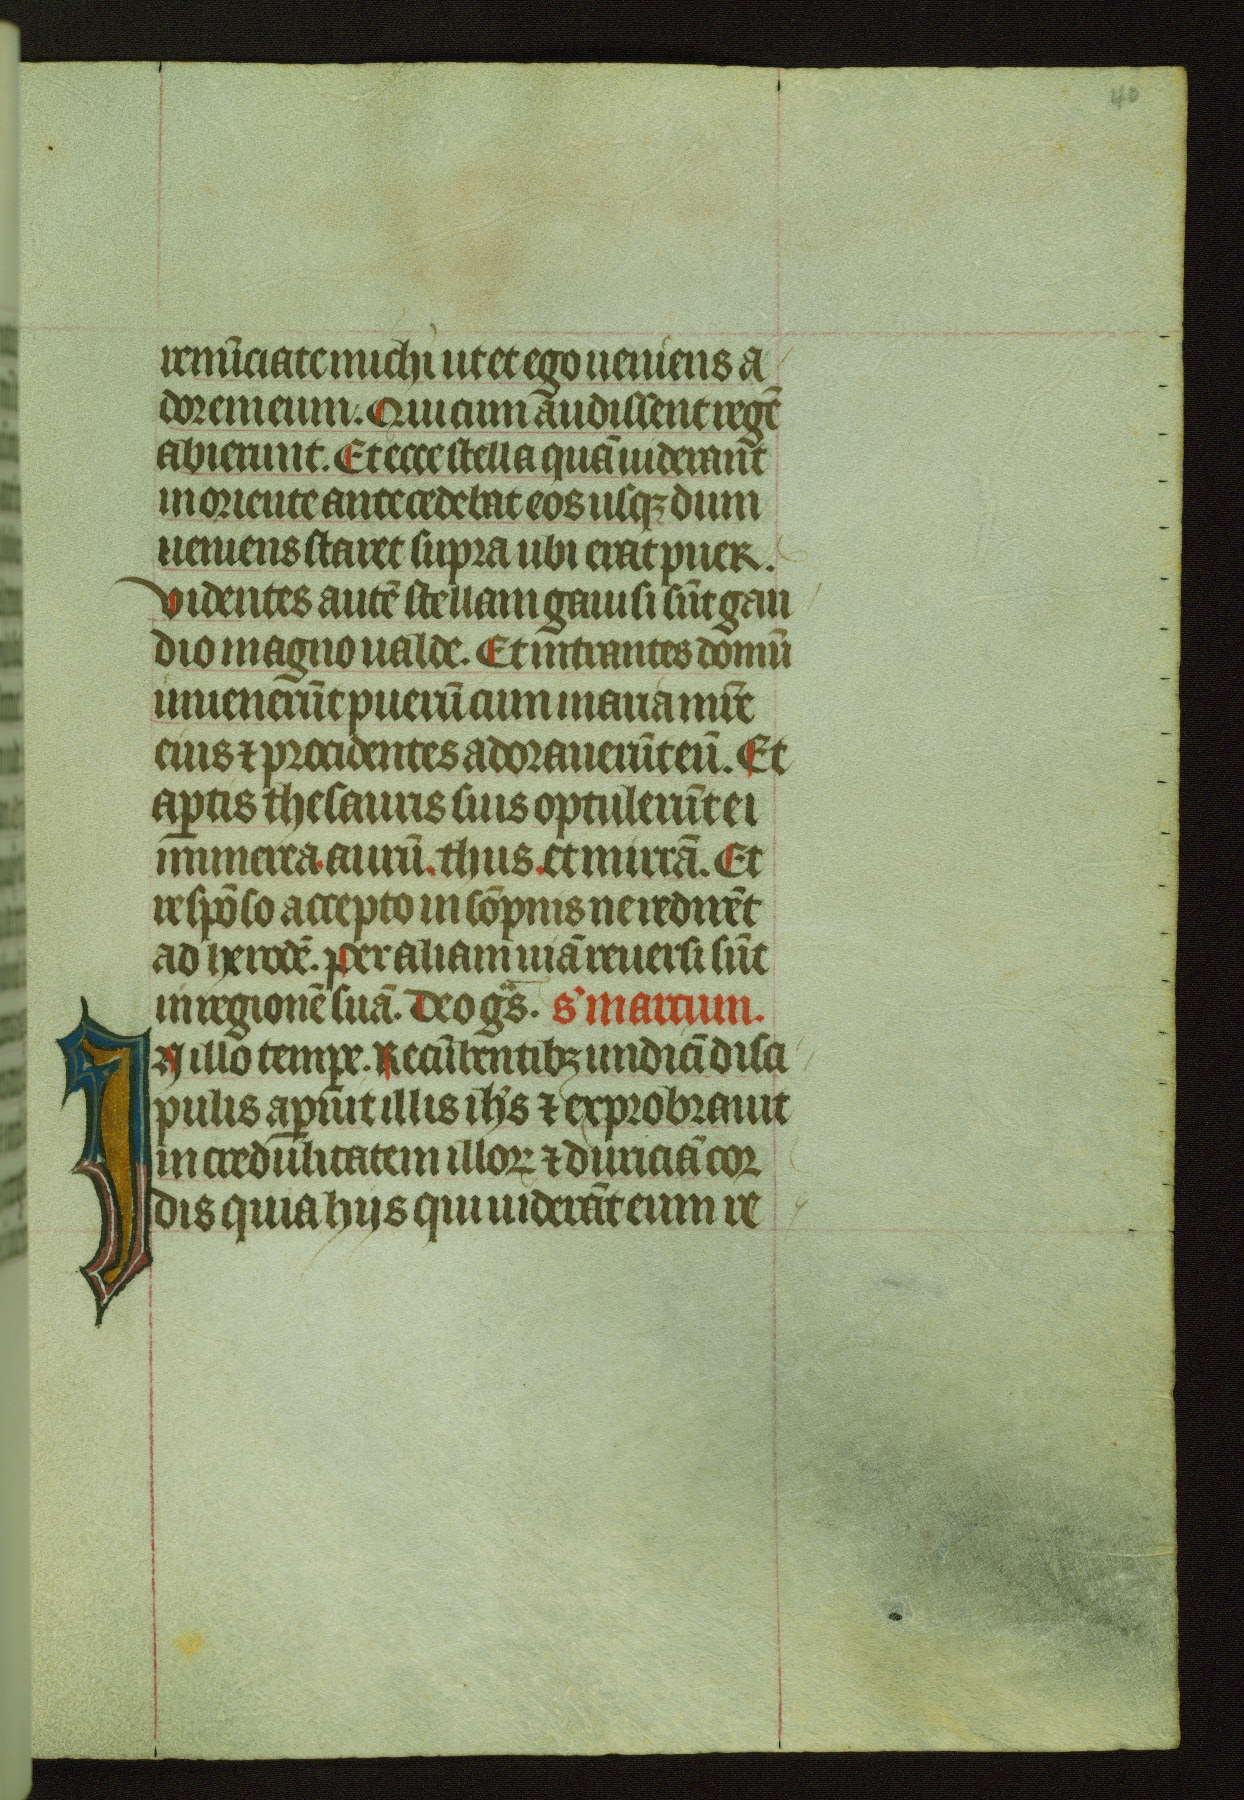 40
renūciate michi ut et ego ueniens a
dorem eum. Qui cum audissent regē
abierunt. Et ecce stella quā uiderant
in oriente antecedebat eos usqꝫ dum
ueniens staret supra ubi erat puer.
Videntes autē stellam gauisi sūt gau
dio magno ualde. Et intrantes domū
inuenerūt puerū cum maria mr̄e
eius ⁊ procidentes adorauerūt eū. Et
ap̄tis thesauris suis optulerūt ei
munera. aurū. thus. et mirrā. Et
respōso accepto in sōpnis ne redirēt
ad herodē. per aliam uiā reuersi sūt
in regionē suā. Deo gr̄s. S' marcum.
IN illo tempe. Recūbentibꝫ undicī disci
pulis ap̄uit illis ih̄s ⁊ exprobrauit
incredūlitatem illoꝝ ⁊ duriciā cor
dis quia hijs qui uiderāt eum re